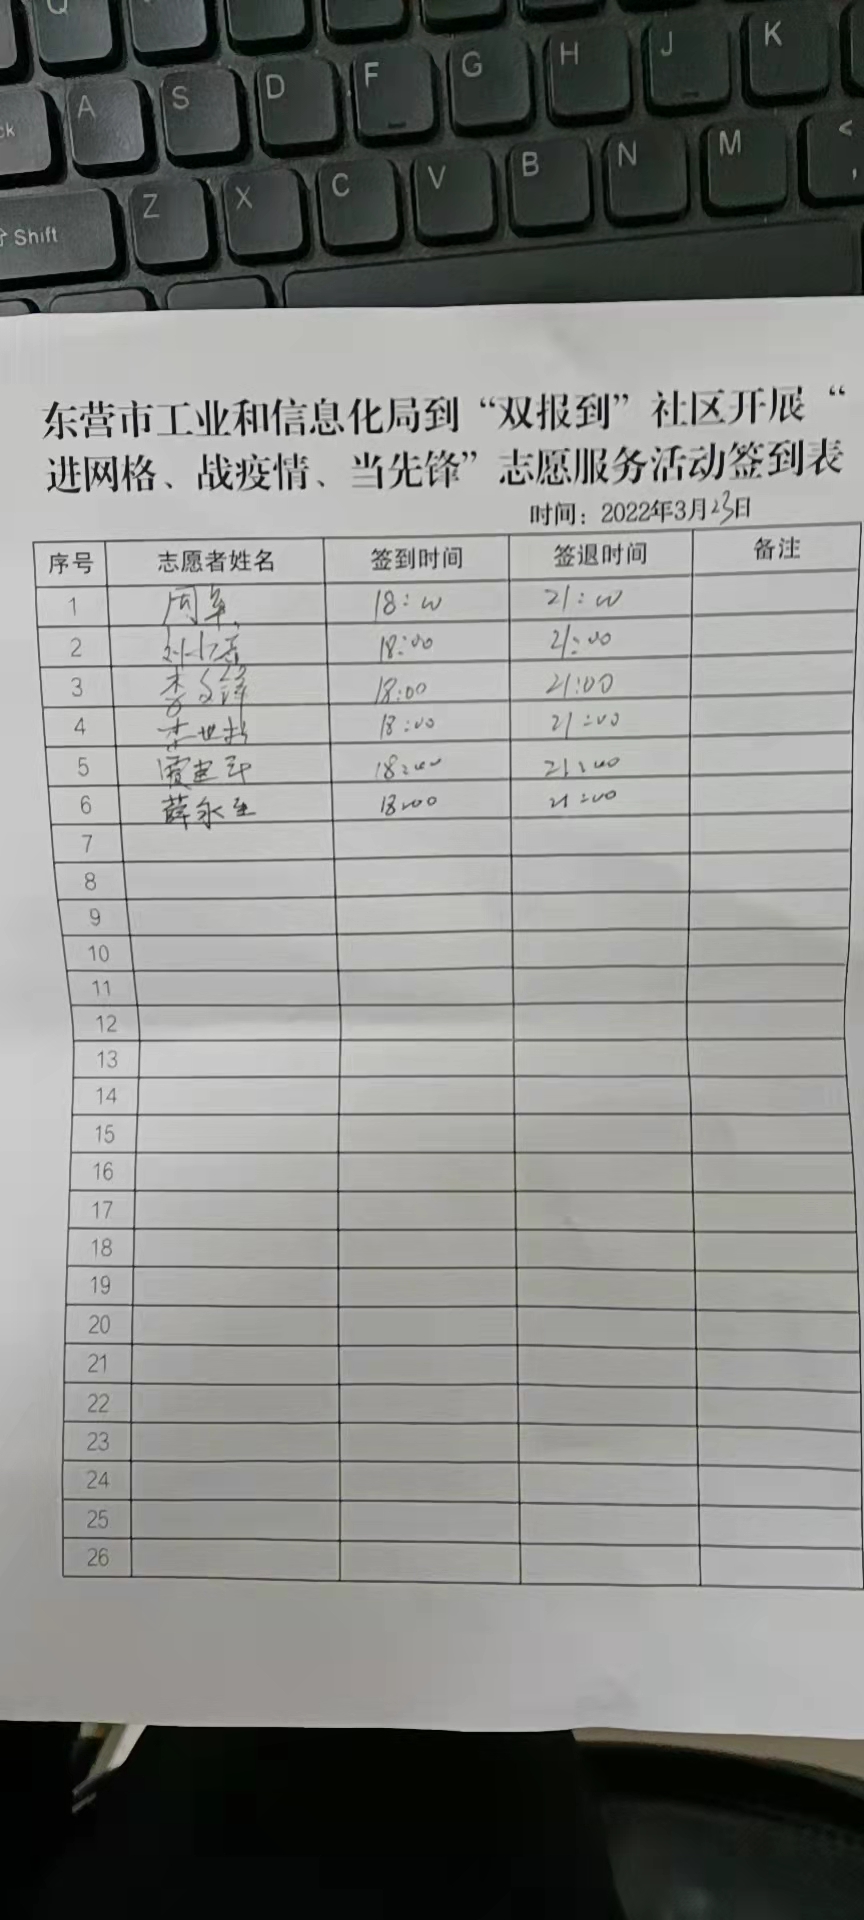 Q
A S D F G H J K
Z X C V B N M <
Shift ,
东营市工业和信息化局到“双报到”社区开展“
进网格、战疫情、当先锋”志愿服务活动签到表
时间：2022年3月23日
序号 志愿者姓名 签到时间 签退时间 备注
1 周军 18:00 21:00
2 18:00 21:00
3 18:00 21:00
4 18:00 21:00
5 18:00 21:00
6 薛永 18:00 21:00
7
8
9
10
11
12
13
14
15
16
17
18
19
20
21
22
23
24
25
26